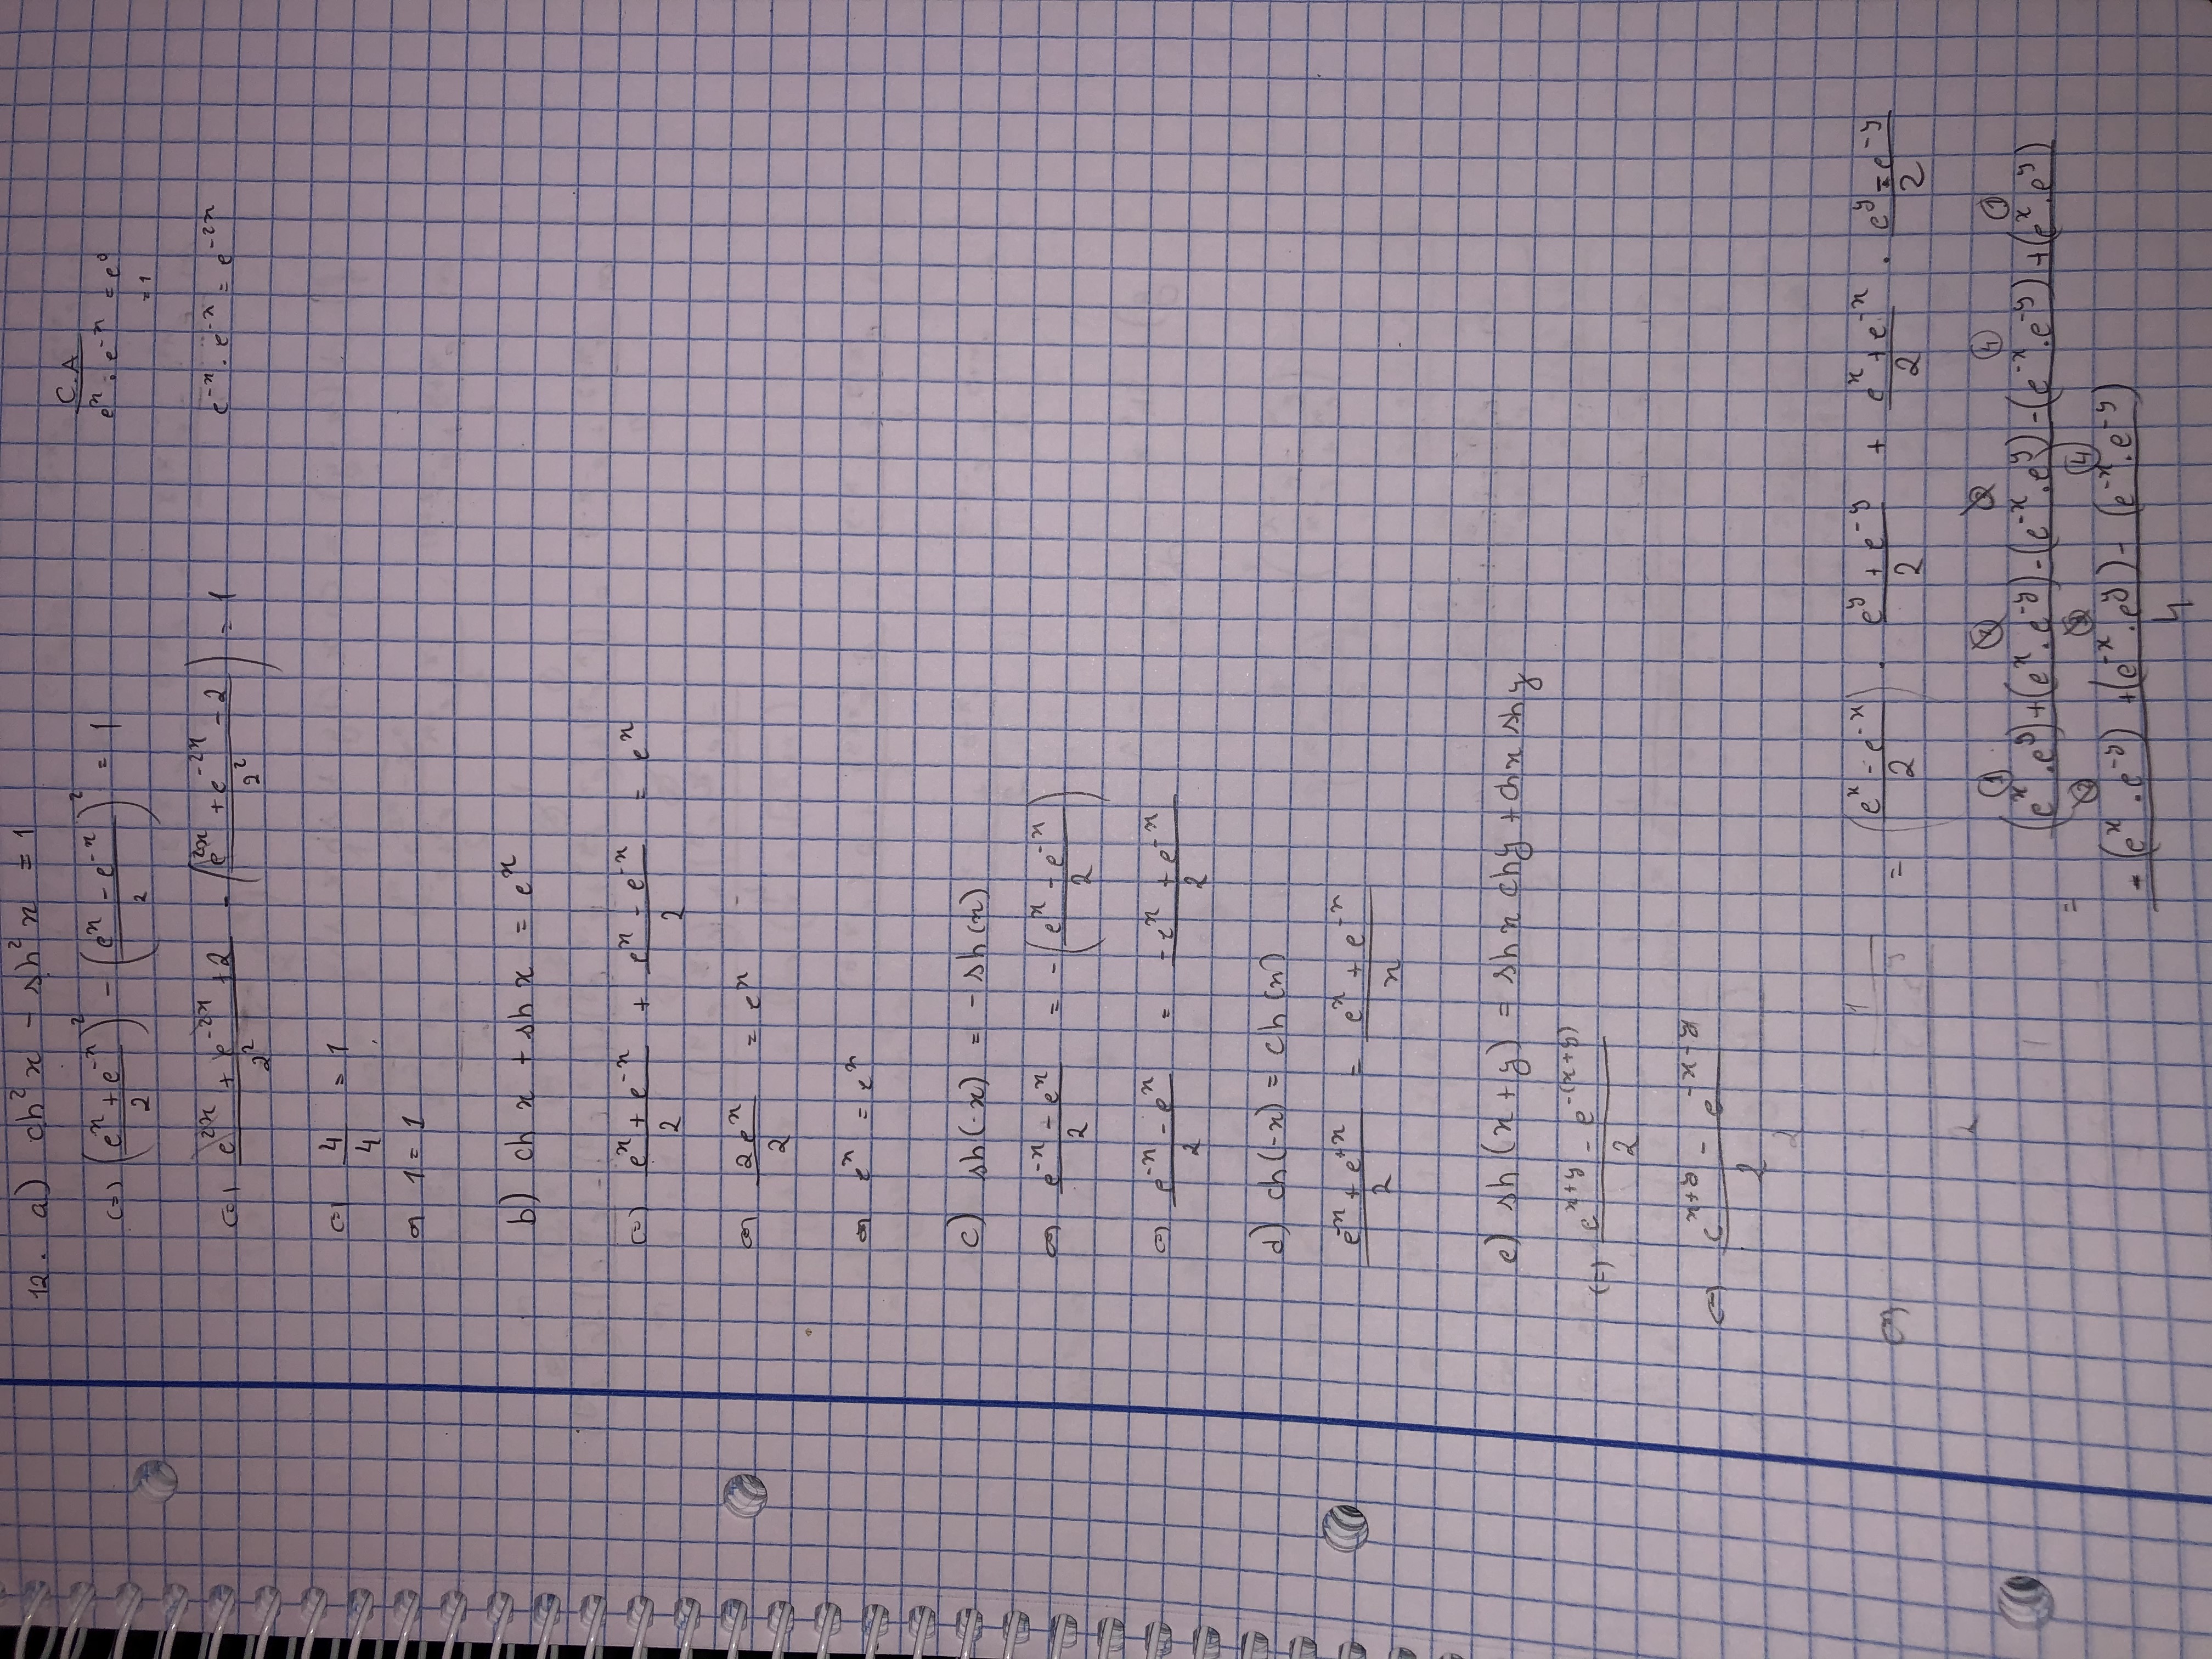 12. a) ch²x - sh²x = 1
(=) ((e^x + e^-x)/2)² - ((e^x - e^-x)/2)² = 1
(=) (e^2x + e^-2x + 2)/2² - ((e^2x + e^-2x - 2)/2²) = 1
(=) 4/4 = 1
(=) 1 = 1
C.A
e^x · e^-x = e^0
= 1
e^-x · e^-x = e^-2x
b) ch x + sh x = e^x
(=) (e^x + e^-x)/2 + (e^x - e^-x)/2 = e^x
(=) 2e^x/2 = e^x
(=) e^x = e^x
c) sh(-x) = -sh(x)
(=) (e^-x - e^x)/2 = -((e^x - e^-x)/2)
(=) (e^-x - e^x)/2 = (-e^x + e^-x)/2
d) ch(-x) = ch(x)
(e^-x + e^+x)/2 = (e^x + e^-x)/x
e) sh(x+y) = sh x ch y + ch x sh y
(=) (e^(x+y) - e^-(x+y))/2
(=) (e^(x+y) - e^(-x-y))/2
2
(=) = ((e^x - e^-x)/2) · (e^y + e^-y)/2 + (e^x + e^-x)/2 · (e^y - e^-y)/2
① ④ ①
= (e^x · e^y) + (e^x · e^-y) - (e^-x · e^y) - (e^-x · e^-y) + (e^x · e^y)
④
- (e^x · e^-y) + (e^-x · e^y) - (e^-x · e^-y)
4